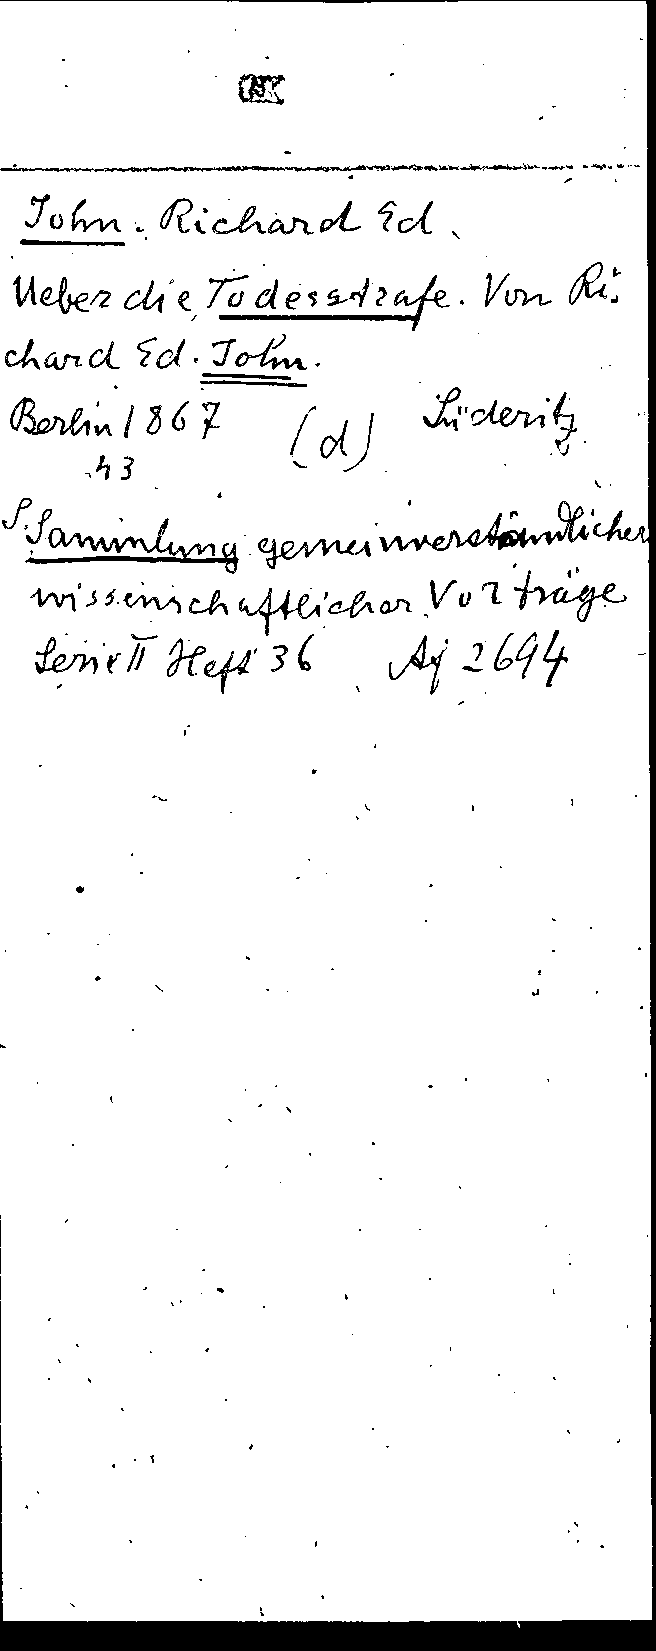 John. Richard Ed.
Ueber die Todesstrafe. Von Ri=
chard Ed. John.
Berlin 1867 (d) Lüderitz
43
S. Sammlung gemeinverständlicher
wissenschaftlicher Vorträge
Serie II Heft 36 Ai 2694